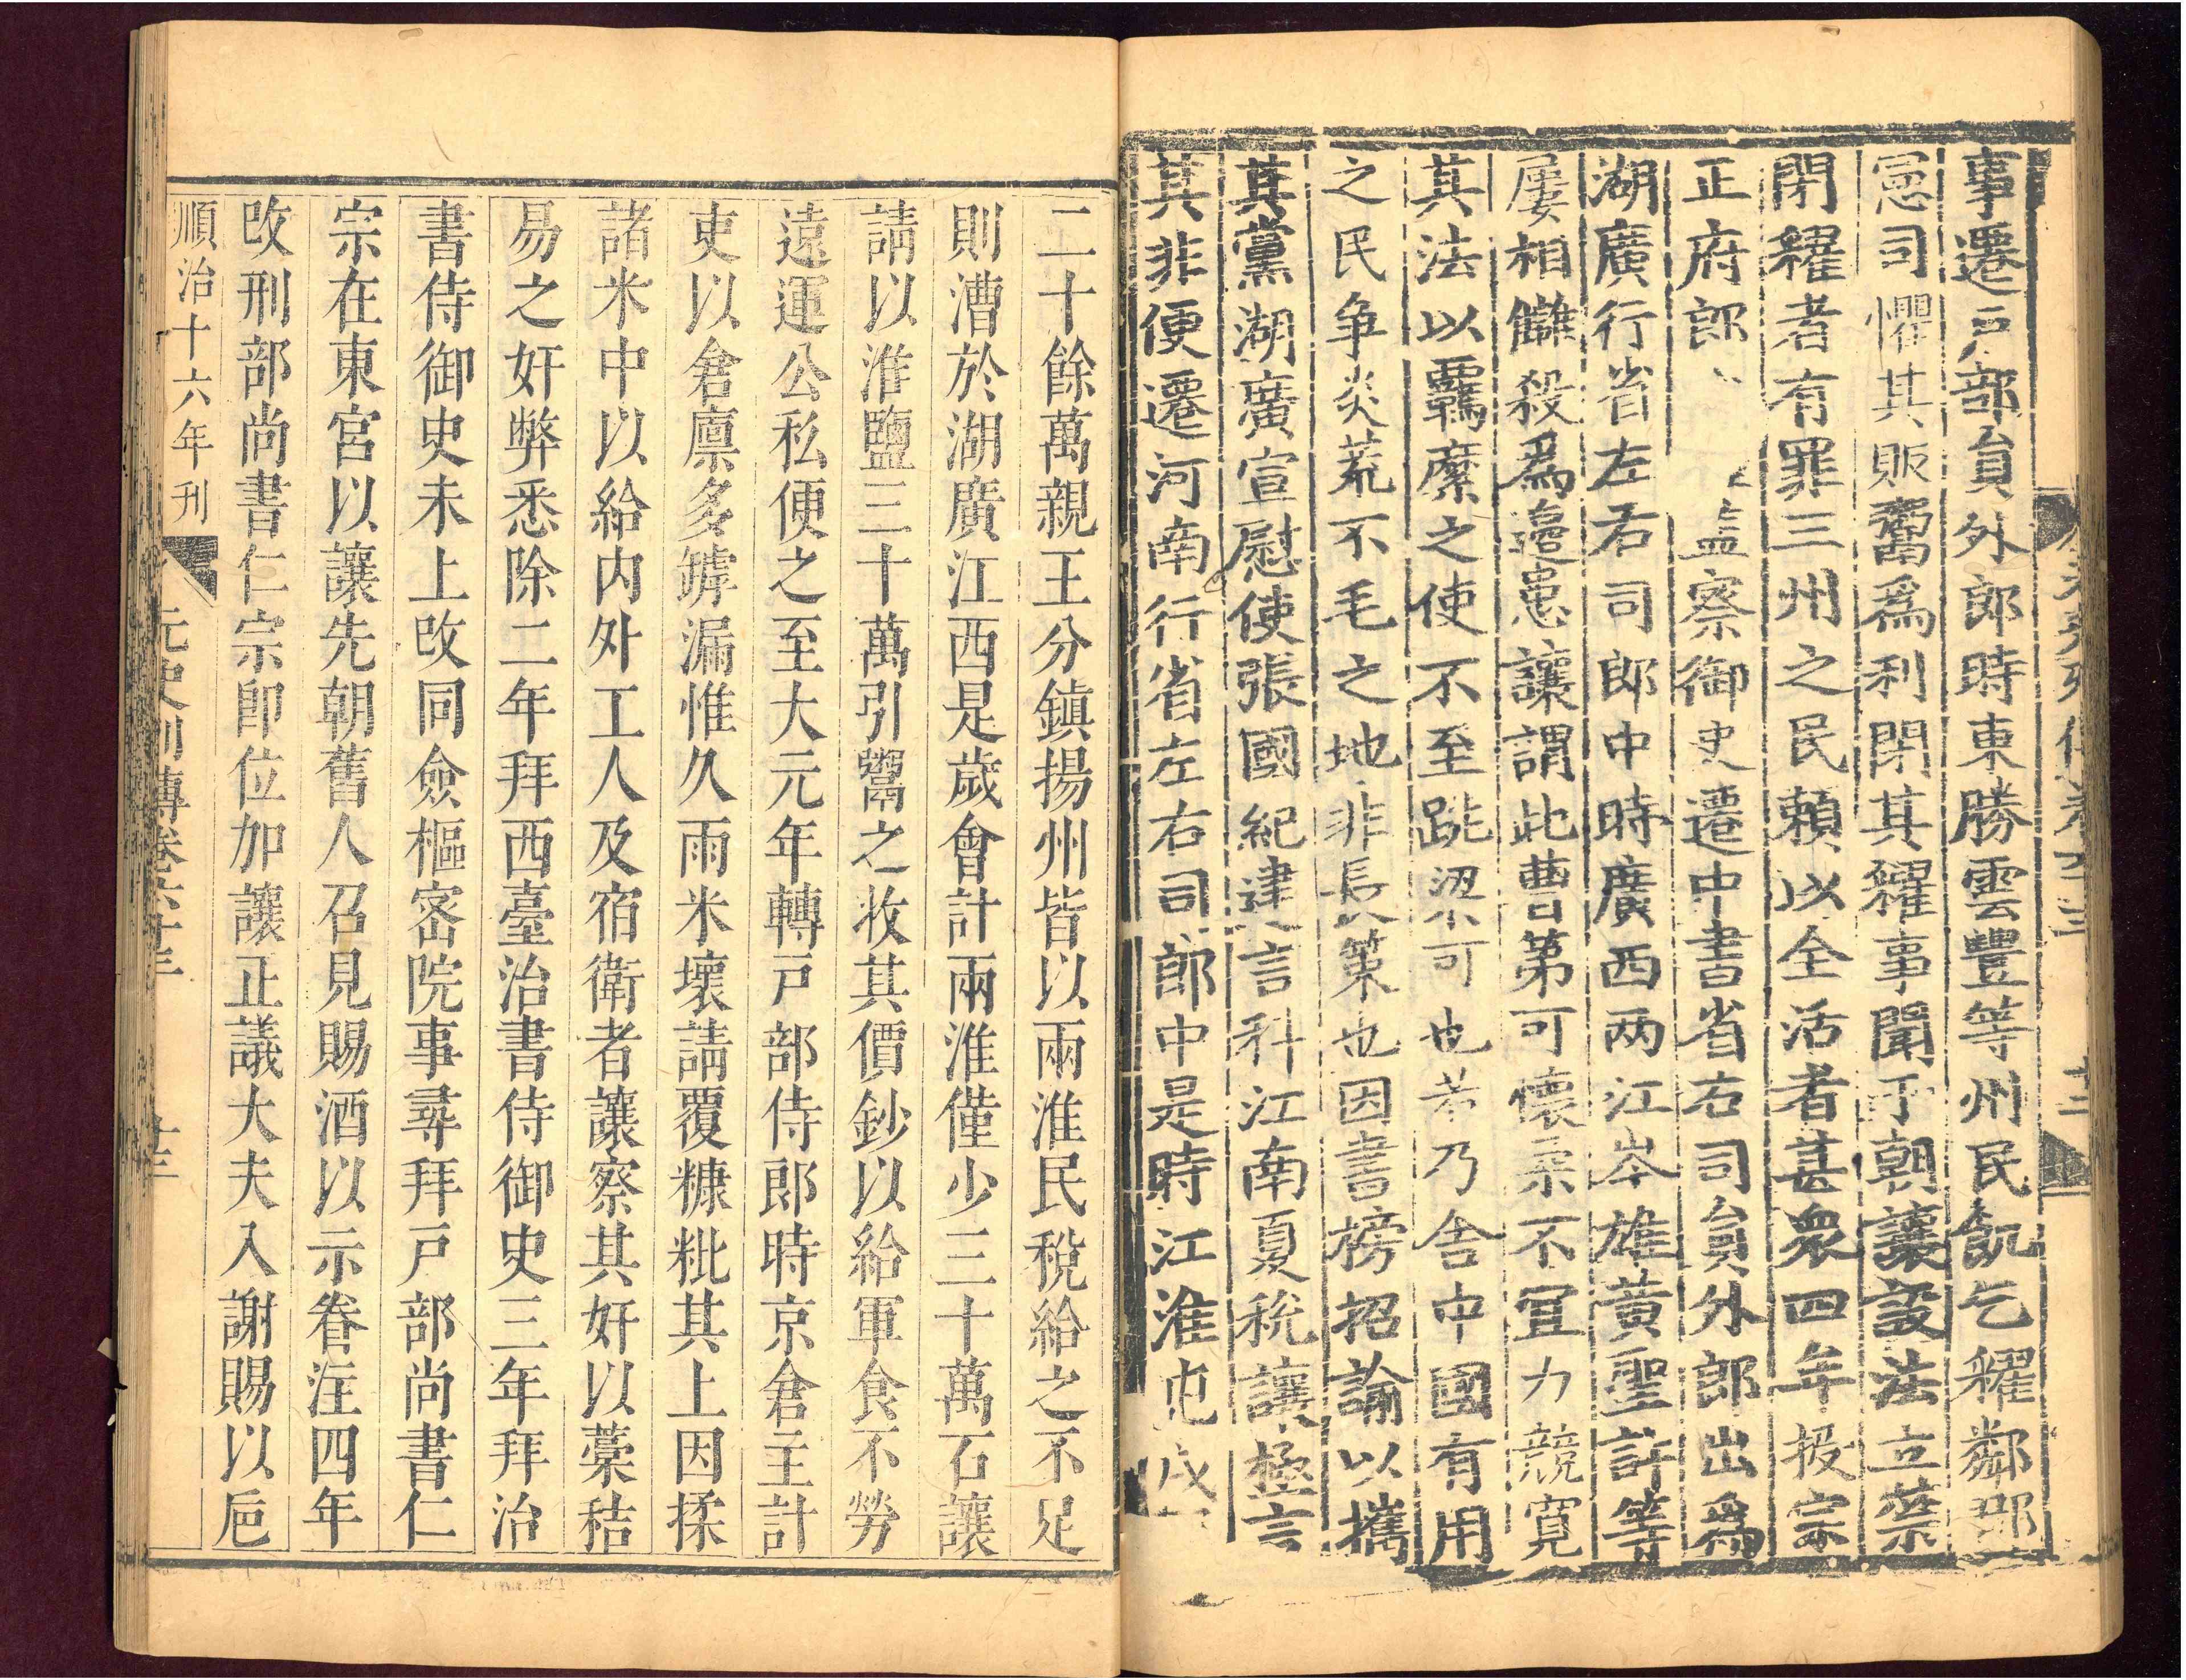 事遷戸部員外郎時東勝雲豐等州民飢乞糴鄰郡
憲司懼其販鬻爲利閉其糴事聞于朝讓設法立禁
閉糴者有罪三州之民賴以全活者甚衆四年授宗
正府郎 監察御史遷中書省右司員外郎出爲
湖廣行省左右司郎中時廣西两江岑雄黄聖許等
屢相讎殺爲邊患讓謂此曹第可懷柔不宜力競寛
其法以羈縻之使不至跳梁可也若乃舍中國有用
之民争炎荒不毛之地非長策也因書榜招諭以攜
其黨湖廣宣慰使張國紀建言科江南夏税讓極言
其非便遷河南行省左右司郎中是時江淮屯戍
二十餘萬親王分鎮揚州皆以兩淮民稅給之不足
則漕於湖廣江西是歲會計兩淮僅少三十萬石讓
請以淮鹽三十萬引鬻之收其價鈔以給軍食不勞
遠運公私便之至大元年轉戸部侍郎時京倉主計
吏以倉廪多罅漏惟久雨米壞請覆糠粃其上因揉
諸米中以給内外工人及宿衛者讓察其奸以藁秸
易之奸弊悉除二年拜西臺治書侍御史三年拜治
書侍御史未上改同僉樞密院事尋拜戸部尚書仁
宗在東宮以讓先朝舊人召見賜酒以示眷注四年
改刑部尚書仁宗即位加讓正議大夫入謝賜以巵
順治十六年刊 元史列傳卷六十三 十三